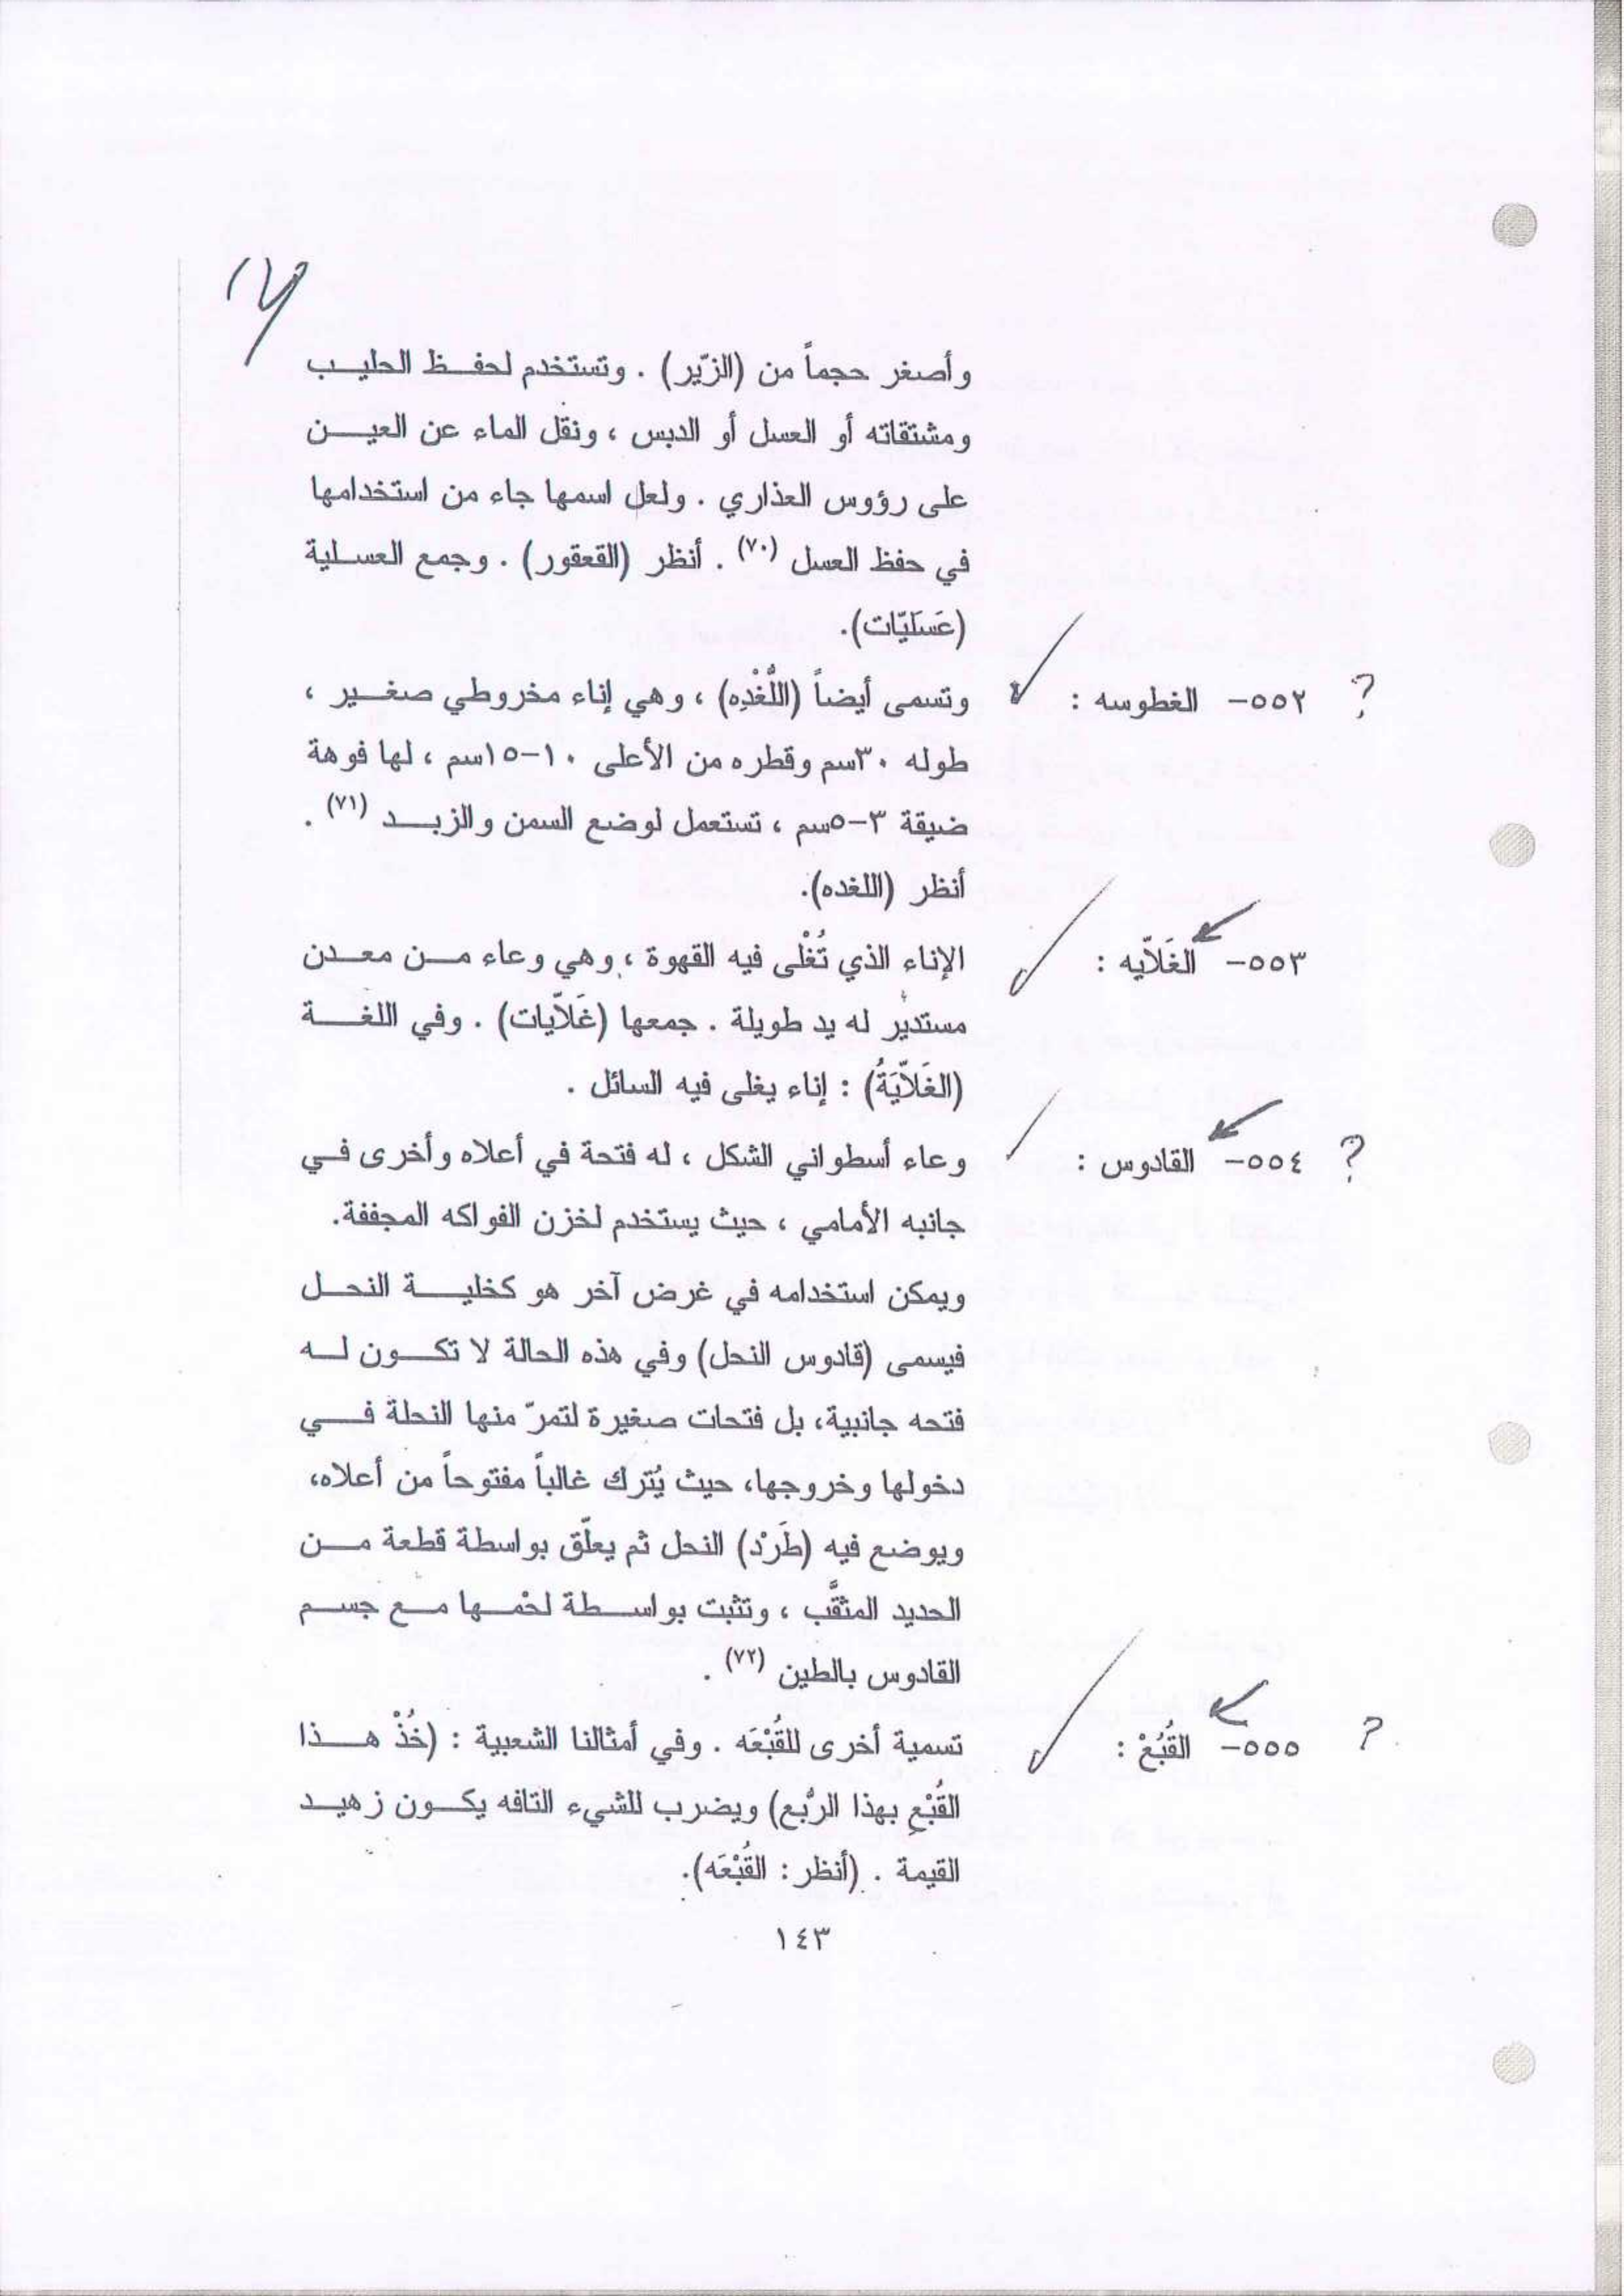 وأصغر حجماً من (الزّير) . وتستخدم لحفظ الحليب
ومشتقاته أو العسل أو الدبس ، ونقل الماء عن العين
على رؤوس العذاري . ولعل اسمها جاء من استخدامها
في حفظ العسل (٧٠) . أنظر (القعقور) . وجمع العسلية
(عَسَليّات).
؟ ٥٥٢- الغطوسه : وتسمى أيضاً (اللُّغْدِه) ، وهي إناء مخروطي صغير ،
طوله ٣٠سم وقطره من الأعلى ١٠-١٥سم ، لها فوهة
ضيقة ٣-٥سم ، تستعمل لوضع السمن والزبد (٧١) .
أنظر (اللغده).
٥٥٣- الغَلاّيه : الإناء الذي تُغْلى فيه القهوة ، وهي وعاء من معدن
مستدير له يد طويلة . جمعها (غَلاّيات) . وفي اللغة
(الغَلاّيَةُ) : إناء يغلى فيه السائل .
؟ ٥٥٤- القادوس : وعاء أسطواني الشكل ، له فتحة في أعلاه وأخرى في
جانبه الأمامي ، حيث يستخدم لخزن الفواكه المجففة.
ويمكن استخدامه في غرض آخر هو كخلية النحل
فيسمى (قادوس النحل) وفي هذه الحالة لا تكون له
فتحه جانبية، بل فتحات صغيرة لتمرّ منها النحلة في
دخولها وخروجها، حيث يُترك غالباً مفتوحاً من أعلاه،
ويوضع فيه (طَرْد) النحل ثم يعلّق بواسطة قطعة من
الحديد المثقَّب ، وتثبت بواسطة لحْمها مع جسم
القادوس بالطين (٧٢) .
؟ ٥٥٥- القُبُعْ : تسمية أخرى للقُبْعَه . وفي أمثالنا الشعبية : (خُذْ هذا
القُبْعِ بهذا الرُّبع) ويضرب للشيء التافه يكون زهيد
القيمة . (أنظر : القُبْعَه).
١٤٣